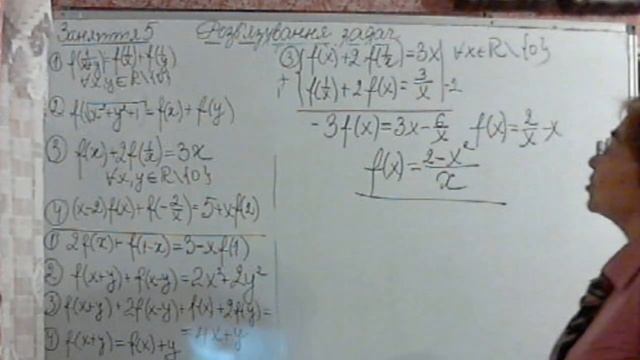 Заняття 5 Розв'язування задач
① f(1/(x+y)) = f(1/x) + f(1/y)
∀x,y∈R\{0}
② f(√(x²+y²+1)) = f(x) + f(y)
③ f(x) + 2f(1/x) = 3x
∀x,y∈R\{0}
④ (x-2)f(x) + f(-2/x) = 5 + xf(2)
① 2f(x) + f(1-x) = 3 - xf(1)
② f(x+y) + f(x-y) = 2x² + 2y²
③ f(x+y) + 2f(x-y) + f(x) + 2f(y) =
= 4x + y
④ f(x+y) = f(x) + y
③ f(x) + 2f(1/x) = 3x ∀x∈R\{0}
+ f(1/x) + 2f(x) = 3/x |-2
-3f(x) = 3x - 6/x f(x) = 2/x - x
f(x) = (2-x²)/x